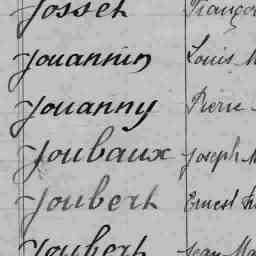 Josset Franço
Jouannin Louis M
Jouanny Pierre
Joubaux Joseph M
Joubert Ernest Fr
Joubert Jean Ma